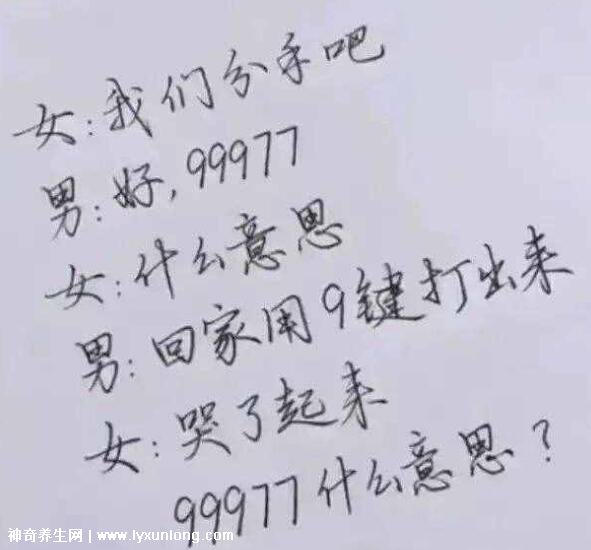 女:我们分手吧
男:好,99977
女:什么意思
男:回家用9键打出来
女:哭了起来
99977什么意思?
神奇养生网 | www.lyxunlong.com